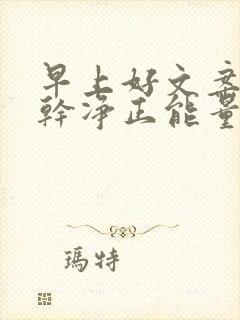 早上好文案
幹淨正能量
瑪特